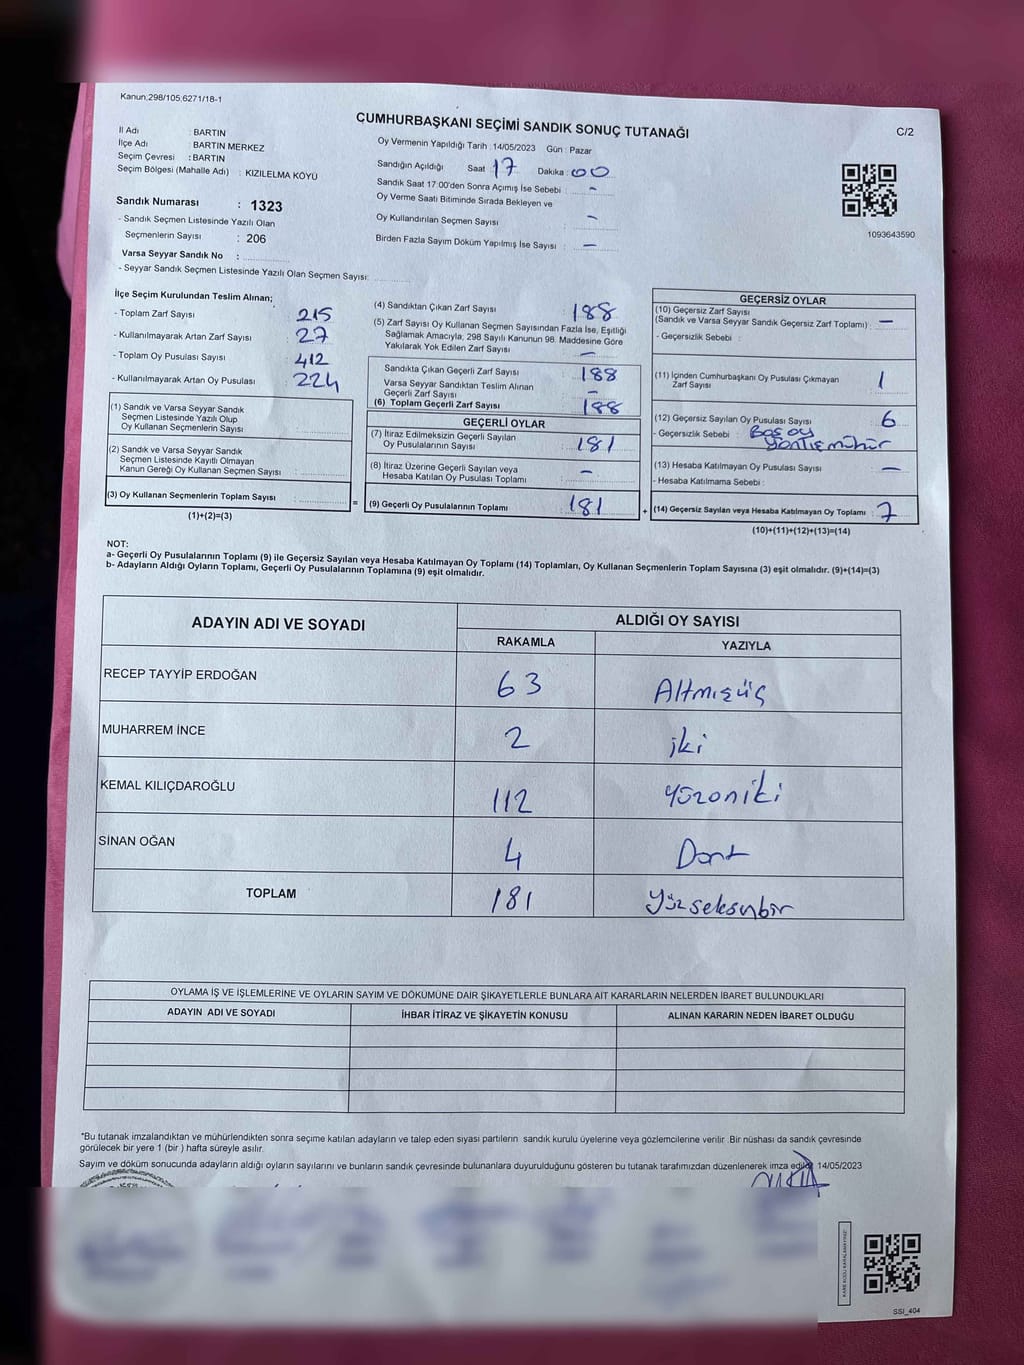 Kanun;298/105;6271/18-1
CUMHURBAŞKANI SEÇİMİ SANDIK SONUÇ TUTANAĞI
C/2
İl Adı : BARTIN
İlçe Adı : BARTIN MERKEZ
Seçim Çevresi : BARTIN
Seçim Bölgesi (Mahalle Adı) : KIZILELMA KÖYÜ
Sandık Numarası : 1323
- Sandık Seçmen Listesinde Yazılı Olan
Seçmenlerin Sayısı : 206
Varsa Seyyar Sandık No :
- Seyyar Sandık Seçmen Listesinde Yazılı Olan Seçmen Sayısı:
Oy Vermenin Yapıldığı Tarih : 14/05/2023 Gün : Pazar
Sandığın Açıldığı Saat 17 Dakika : 00
Sandık Saat 17:00'den Sonra Açımış İse Sebebi : -
Oy Verme Saati Bitiminde Sırada Bekleyen ve
Oy Kullandırılan Seçmen Sayısı : -
Birden Fazla Sayım Döküm Yapılmış İse Sayısı : -
1093643590
İlçe Seçim Kurulundan Teslim Alınan;
- Toplam Zarf Sayısı : 215
- Kullanılmayarak Artan Zarf Sayısı : 27
- Toplam Oy Pusulası Sayısı : 412
- Kullanılmayarak Artan Oy Pusulası : 224
(1) Sandık ve Varsa Seyyar Sandık
Seçmen Listesinde Yazılı Olup
Oy Kullanan Seçmenlerin Sayısı :
(2) Sandık ve Varsa Seyyar Sandık
Seçmen Listesinde Kayıtlı Olmayan
Kanun Gereği Oy Kullanan Seçmen Sayısı :
(3) Oy Kullanan Seçmenlerin Toplam Sayısı :
(1)+(2)=(3)
=
(4) Sandıktan Çıkan Zarf Sayısı : 188
(5) Zarf Sayısı Oy Kullanan Seçmen Sayısından Fazla İse, Eşitliği
Sağlamak Amacıyla, 298 Sayılı Kanunun 98. Maddesine Göre
Yakılarak Yok Edilen Zarf Sayısı : -
Sandıkta Çıkan Geçerli Zarf Sayısı : 188
Varsa Seyyar Sandıktan Teslim Alınan
Geçerli Zarf Sayısı : -
(6) Toplam Geçerli Zarf Sayısı : 188
GEÇERLİ OYLAR
(7) İtiraz Edilmeksizin Geçerli Sayılan
Oy Pusulalarının Sayısı : 181
(8) İtiraz Üzerine Geçerli Sayılan veya
Hesaba Katılan Oy Pusulası Toplamı : -
(9) Geçerli Oy Pusulalarının Toplamı : 181
+
GEÇERSİZ OYLAR
(10) Geçersiz Zarf Sayısı
(Sandık ve Varsa Seyyar Sandık Geçersiz Zarf Toplamı) : -
- Geçersizlik Sebebi :
(11) İçinden Cumhurbaşkanı Oy Pusulası Çıkmayan
Zarf Sayısı : 1
(12) Geçersiz Sayılan Oy Pusulası Sayısı : 6
- Geçersizlik Sebebi : Boş oy
Yanlış mühür
(13) Hesaba Katılmayan Oy Pusulası Sayısı : -
- Hesaba Katılmama Sebebi :
(14) Geçersiz Sayılan veya Hesaba Katılmayan Oy Toplamı : 7
(10)+(11)+(12)+(13)=(14)
NOT:
a- Geçerli Oy Pusulalarının Toplamı (9) ile Geçersiz Sayılan veya Hesaba Katılmayan Oy Toplamı (14) Toplamları, Oy Kullanan Seçmenlerin Toplam Sayısına (3) eşit olmalıdır. (9)+(14)=(3)
b- Adayların Aldığı Oyların Toplamı, Geçerli Oy Pusulalarının Toplamına (9) eşit olmalıdır.
ADAYIN ADI VE SOYADI
ALDIĞI OY SAYISI
RAKAMLA YAZIYLA
RECEP TAYYİP ERDOĞAN 63 Altmışüç
MUHARREM İNCE 2 iki
KEMAL KILIÇDAROĞLU 112 Yüzoniki
SİNAN OĞAN 4 Dört
TOPLAM 181 Yüzseksenbir
OYLAMA İŞ VE İŞLEMLERİNE VE OYLARIN SAYIM VE DÖKÜMÜNE DAİR ŞİKAYETLERLE BUNLARA AİT KARARLARIN NELERDEN İBARET BULUNDUKLARI
ADAYIN ADI VE SOYADI İHBAR İTİRAZ VE ŞİKAYETİN KONUSU ALINAN KARARIN NEDEN İBARET OLDUĞU
*Bu tutanak imzalandıktan ve mühürlendikten sonra seçime katılan adayların ve talep eden siyasi partilerin sandık kurulu üyelerine veya gözlemcilerine verilir .Bir nüshası da sandık çevresinde
görülecek bir yere 1 (bir ) hafta süreyle asılır.
Sayım ve döküm sonucunda adayların aldığı oyların sayılarını ve bunların sandık çevresinde bulunanlara duyurulduğunu gösteren bu tutanak tarafımızdan düzenlenerek imza edildi 14/05/2023
KARE KODU KARALAMAYINIZ!
SSI_404